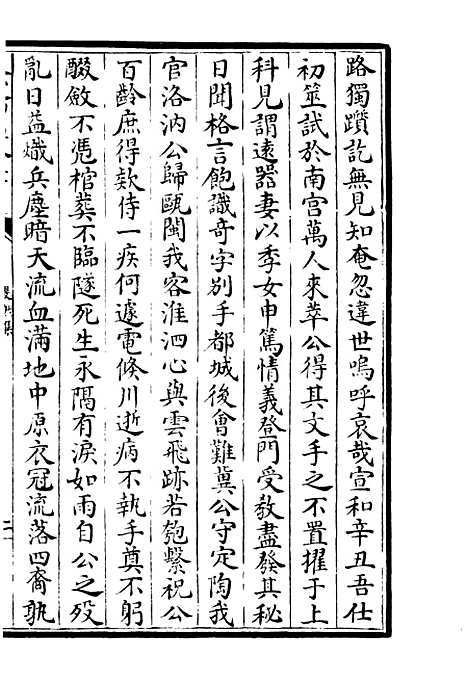 路獨躓訖無見知奄忽違世嗚呼哀哉宣和辛丑吾仕
初筮試於南宫萬人來萃公得其文手之不置擢于上
科見謂遠器妻以季女申篤情義登門受教盡發其秘
日聞格言飽識奇字别手都城後會難冀公守定陶我
官洛汭公歸甌閩我客淮泗心與雲飛跡若匏繫祝公
百齡庶得欵侍一疾何遽電倏川逝病不執手奠不躬
醊斂不慿棺葬不臨隧死生永隔有淚如雨自公之殁
亂日益熾兵塵暗天流血滿地中原衣冠流落四裔孰